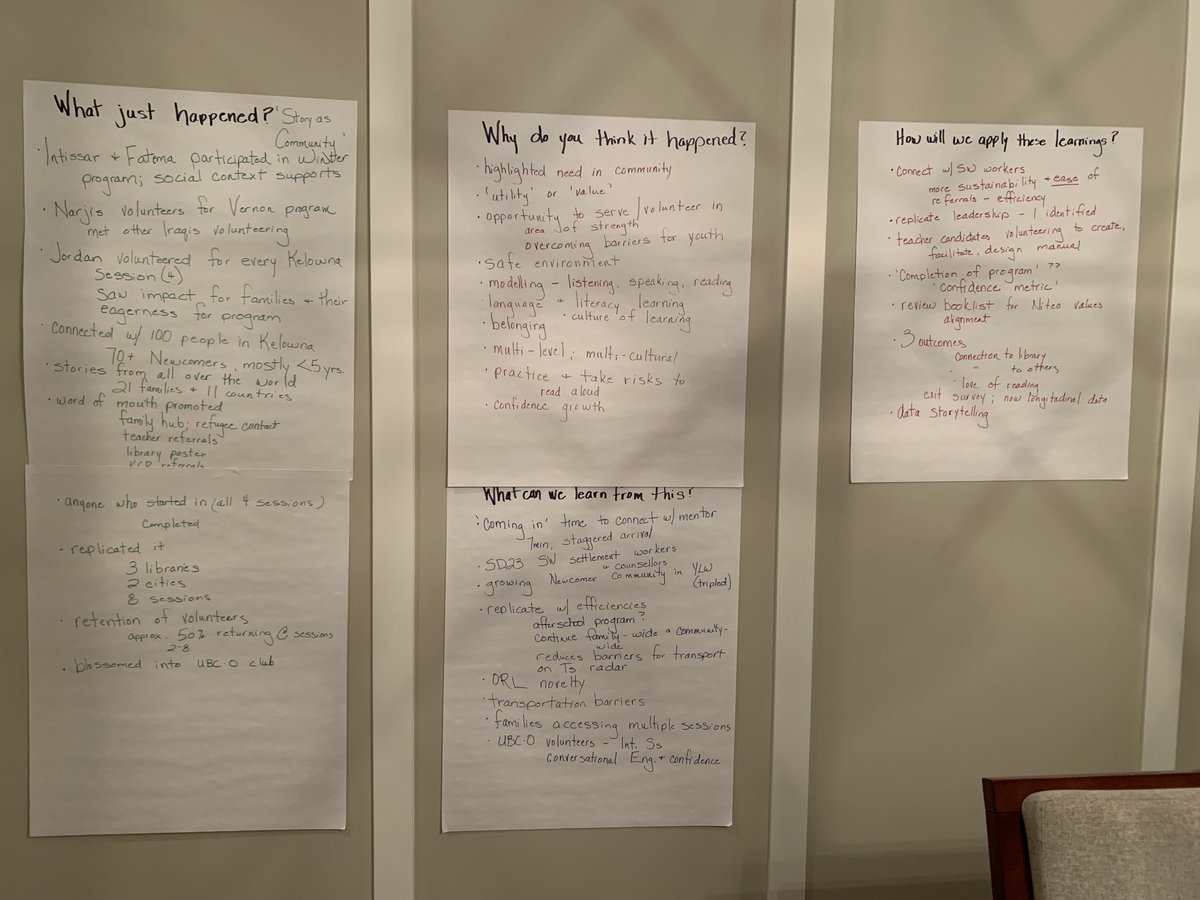 What just happened? 'Story as
Community'
· Intissar + Fatema participated in Winter
program; social context supports
· Narjis volunteers for Vernon program
met other Iraqis volunteering
· Jordan volunteered for every Kelowna
Session (4)
Saw impact for families + their
eagerness for program
· Connected w/ 100 people in Kelowna
70+ Newcomers, mostly <5 yrs.
· stories from all over the world
21 families + 11 countries
· word of mouth promoted
family hub; refugee contact
teacher referrals
library poster
referrals
· anyone who started in (all 4 sessions)
completed
· replicated it
3 libraries
2 cities
8 sessions
· retention of volunteers
approx. 50% returning @ sessions
2-8
· blossomed into UBC-O club
Why do you think it happened?
· highlighted need in community
· 'utility' or 'value'
· opportunity to serve/volunteer in
area of strength
overcoming barriers for youth
· safe environment
· modelling - listening, speaking, reading
· language + literacy learning
· belonging · culture of learning
· multi-level; multi-cultural
· practice + take risks to
read aloud
· confidence growth
What can we learn from this?
· 'Coming in' time to connect w/ mentor
7min, staggered arrival
· SD23 SW settlement workers
+ counsellors
· growing Newcomer Community in YLW
(tripled)
· replicate w/ efficiencies
afterschool program?
continue family-wide + community-
wide
reduces barriers for transport
on Ts radar
· ORL novelty
· transportation barriers
· families accessing multiple sessions
· UBC-O volunteers - Int. Ss
conversational Eng. + confidence
How will we apply these learnings?
· Connect w/ SW workers
more sustainability + ease of
referrals - efficiency
· replicate leadership - 1 identified
· teacher candidates volunteering to create,
facilitate, design manual
· 'Completion of program' ??
'confidence metric'
· review booklist for Niteo values
alignment
· 3 outcomes
connection to library
· " to others
· love of reading
exit survey; now longitudinal data
· data storytelling